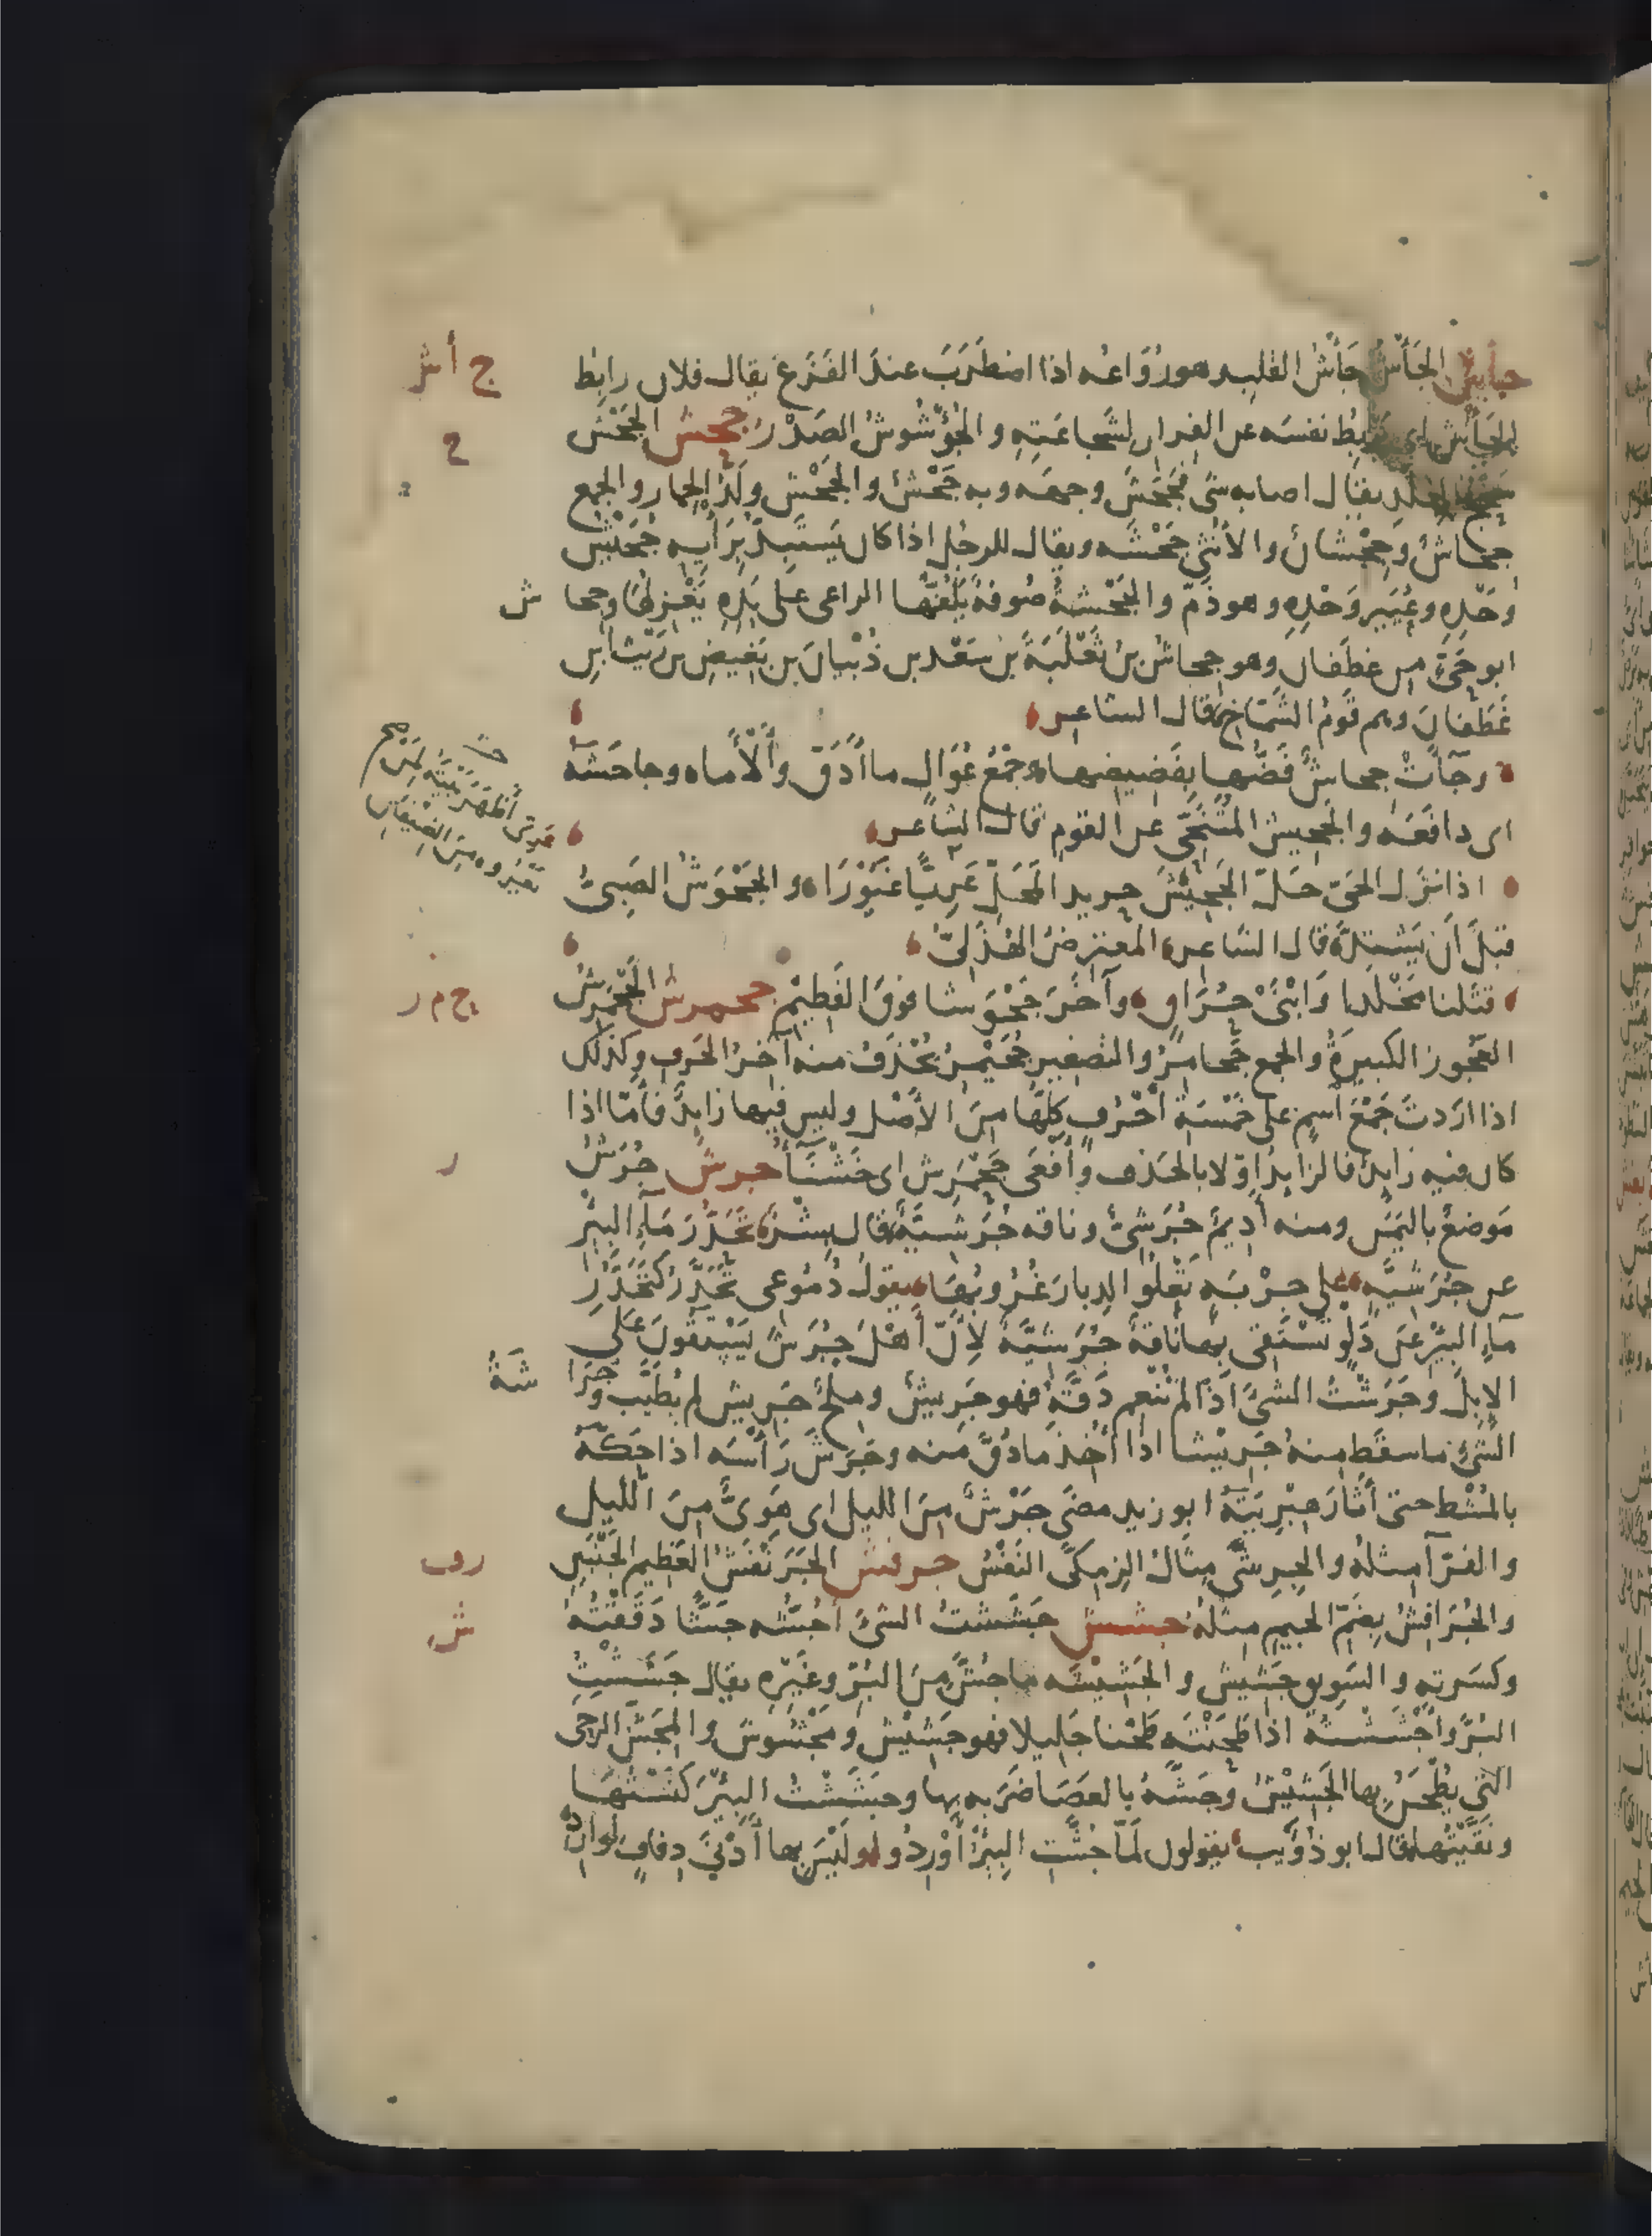 جأش الجَأْشُ جَأْشُ القلب وهو رُوَاعُه اذا اضطَرَبَ عندَ الفَزَعِ يقال فلان رابِطُ
ج أ ش
الجَأْشِ اى يَرْبِطُ نفسَه عن الفرار لشَجاعَتِهِ والجُؤْشُوشُ الصَدْرُ جحش الجَحْشُ
ح
سَحْجُ الجلد يقال اصابه شئ فجَحَشَ وجهَه وبه جَحْشٌ والجَحْش ولَدُ الحِمار والجمع
جِحاشٌ وجِحْشانٌ والأُنْثى جَحْشَه ويقال للرجُل اذا كان يَسْتَبِدُّ بِرَأْيِهِ جُحَيْشُ
وَحْدِهِ وعُيَيْرُ وَحْدِهِ وهو ذَمٌّ والجَحْشَةُ صُوفةٌ يَلُفُّها الراعى على يَدِهِ يَغْزِلُها وجِحا
ش
ابو حَىٍّ من غطَفان وهو جِحاشُ بنُ ثَعْلَبَةَ بن سَعْد بن ذُبْيانَ بن بَغِيضِ بن رَيْث بنِ
غَطَفانَ وهم قَومُ الشَمّاخ قال الشاعر
وجَآءَتْ جِحاشٌ قَضُّها بقَضِيضِها وجَمْعُ عُوَالٍ ما أَدَقَّ وأَلْأَما وجاحَشَهُ
اى دافَعَه والجَحِيشُ المُتَنَحِّى عن القومِ قال الشاعر
اذا نزل الحَىُّ حَلَّ الجَحِيْشَ حريد المَحَلِّ غَوِيًّا غَيُوْرَا والجَحْوَشُ الصَبِىُّ
قبلَ أنْ يَشْتَدَّ قال الشاعر المُعترِضُ الهُذَلِىُّ
قتَلنا مَخْلَدا وَابْنَىْ حُرَاقٍ وآخَرَ جَحْوَشا فوقَ الفَطِيْمِ جحمرش الجَحْمَرِشُ
ح م ر
العَجُوز الكبيرَةُ والجمع جَحامِرُ والتصغير جُحَيْمِرُ يُحْذَفُ منه آخرُ الحَرفِ وكذلك
اذا اردتَ جَمْعَ اسمٍ على خَمْسَةِ أَحْرُفٍ كلُّها مِنَ الأَصْل وليس فيها زايِدٌ فأمّا اذا
كان فيه زايِدٌ فالزايِدُ اوّلا بالحَذف وأفْعَى جَحْمَرِش اى خَشْنَآءُ جرش جُرَشُ
ر
مَوضعٌ باليَمَنِ ومنه أَدِيمٌ جُرَشِىٌّ وناقه جُرَشِيَّةٌ قال بِشْرٌ تَحَدُّرَ مَآءِ البِئْرِ
عن جُرَشِيَّةٍ على جِرْبَةٍ تَعْلُوا الدِبارَ غُرُوبُها يقولُ دُمُوعى تَحَدَّرُ كتَحَدُّرِ
مآءِ البِئْرِ عن دَلوٍ تَسْتَقى بِها ناقةٌ جُرَشِيَّةٌ لأِنَّ أَهْلَ جُرَشَ يَسْتَقُونَ عَلَى
الإبِلِ وجَرَشْتُ الشئَ اذا لم تُنْعِم دَقَّهُ فهو جَرِيشٌ ومِلحٌ جَرِيشٌ لم يُطَيَّب وجُرَا
شَةُ
الشئِ ما سقَط مِنهُ جَرِيْشا اذا أُخذ ما دُقَّ منه وجَرَشَ رَأْسَه اذا حَكَّهُ
بالمُشْط حتى أَثارَ هِبْرِيَتَهُ ابو زيد مضَى جَرْشٌ مِنَ الليل اى هَوِىٌّ مِنَ اللّيل
والفرّآءُ مثلهُ والجِرِشَّى مِثالُ الزِمِكَّى النَفْسُ جرفش الجَرَنْفَشُ العَظيم الجَنْبَيْنِ
ر ف
والجُرَافِشُ بِضَمِّ الجيم مثلهُ جشش جَشَشتُ الشئَ أَجُشُّه جَشًّا دَقَقْتُهُ
ش
وكسَرته والسَوِيق جَشِيش والجَشِيْشَه ما جُشَّ مِنَ البُرّ وغَيْرِهِ يقال جَشَشْتُ
البُرَّ وأَجْشَشْتُهُ اذا طَحَنْتَه طَحْنا جَلِيلا فهو جَشِيْش ومَجْشُوش والمِجَشُّ الرحى
الّتى يُطْحَنُ بِها الجَشِيْشُ وجَشَّهُ بالعَصَا ضَرَبه بِها وجَشَشْتُ البِئْرَ كَنَسْتُها
ونَقَّيْتُها قال ابو ذُؤَيب يقولون لَمّا جُشَّتِ البِئْرُ أَوْرِدُوا ولَيْسَ بِها أَدْنَى ذِفافٍ لِوارِدِ